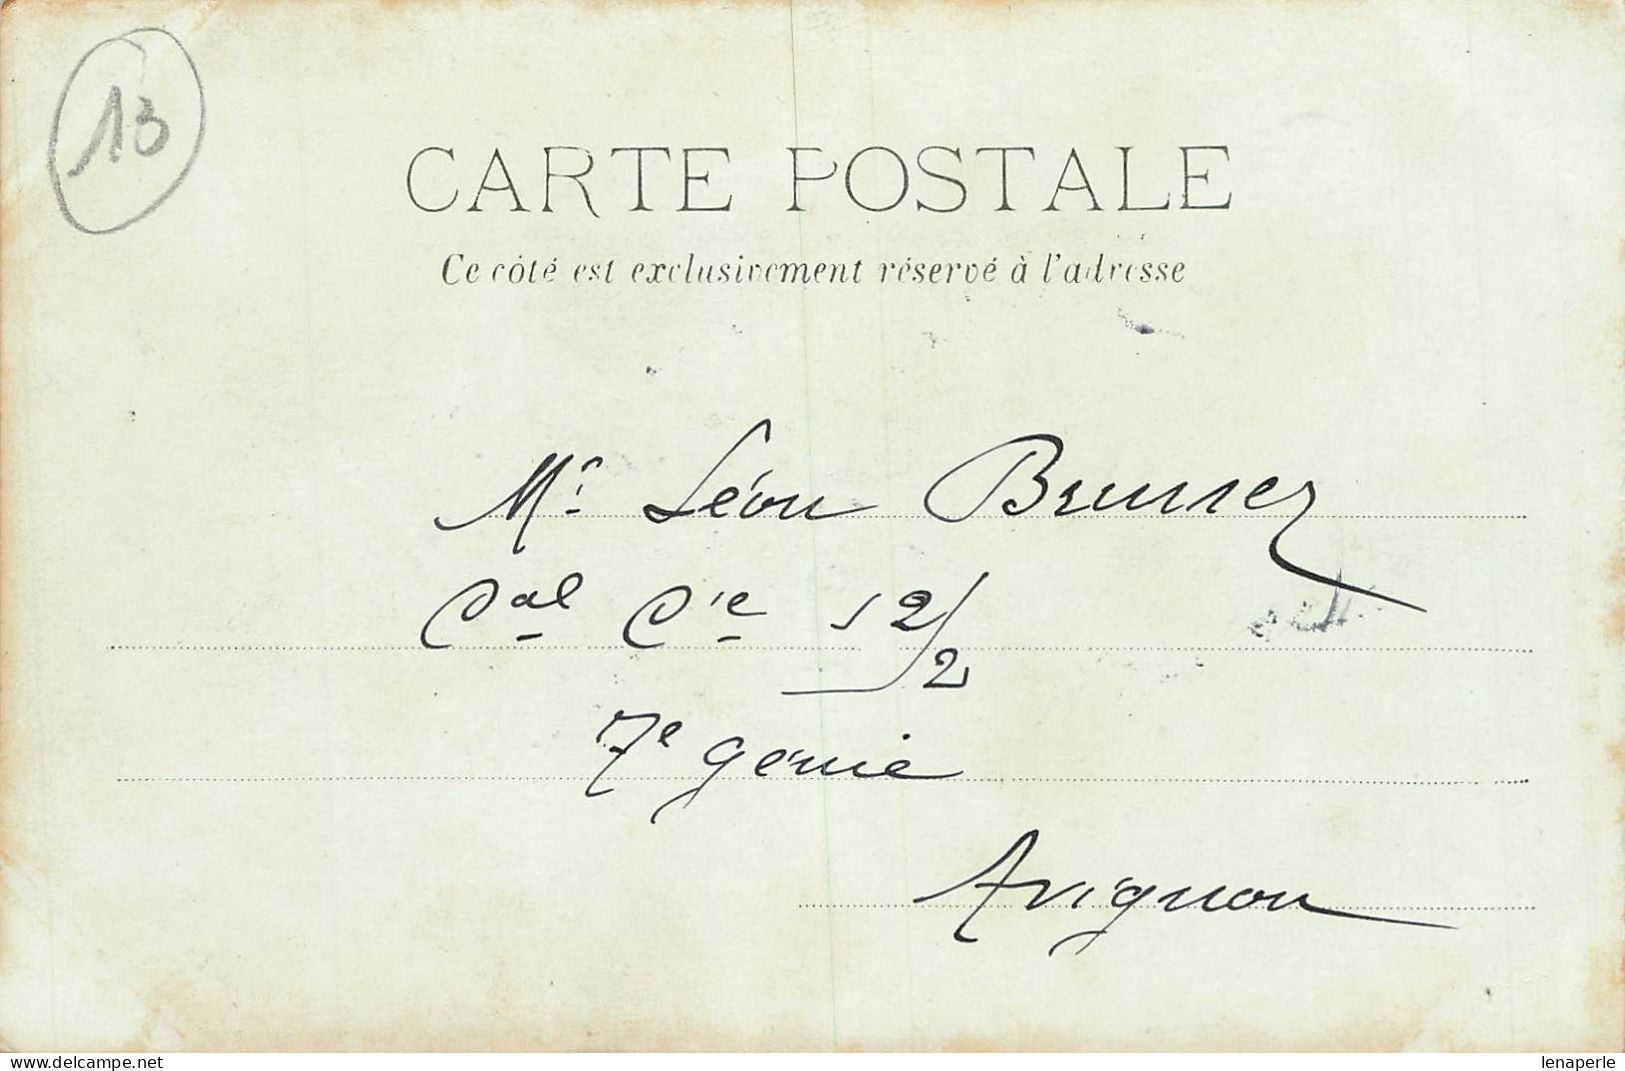 13
CARTE POSTALE
Ce côté est exclusivement réservé à l'adresse
Mr Léon Brunner
Cal Cie 12/2
7e génie
Avignon
www.delcampe.net
lenaperle